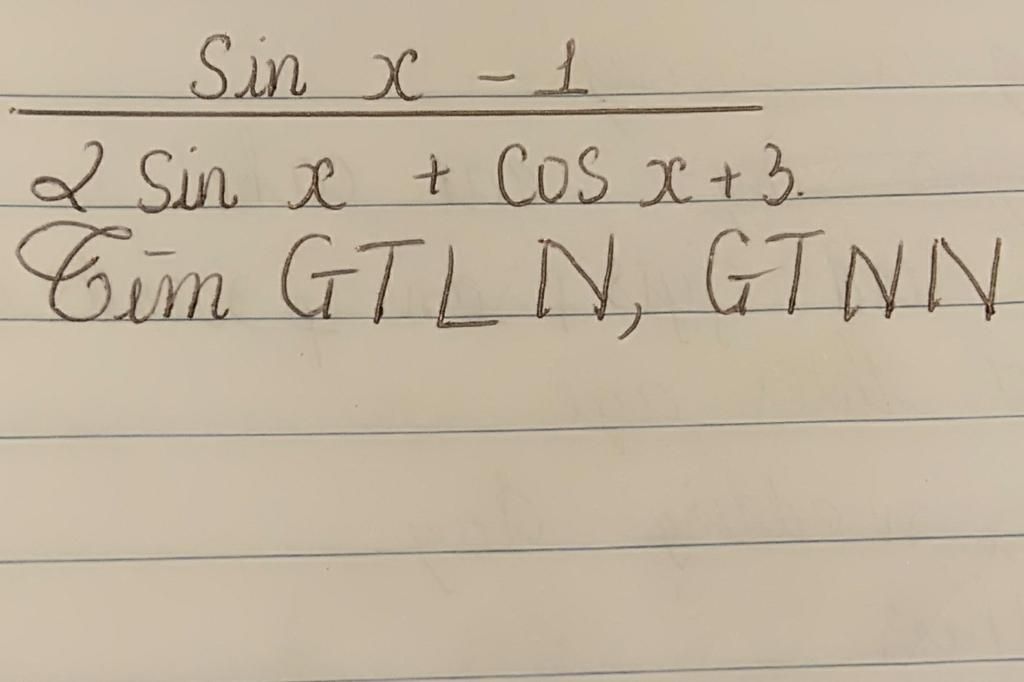 Sin x - 1
2 Sin x + Cos x + 3.
Tìm GTLN, GTNN